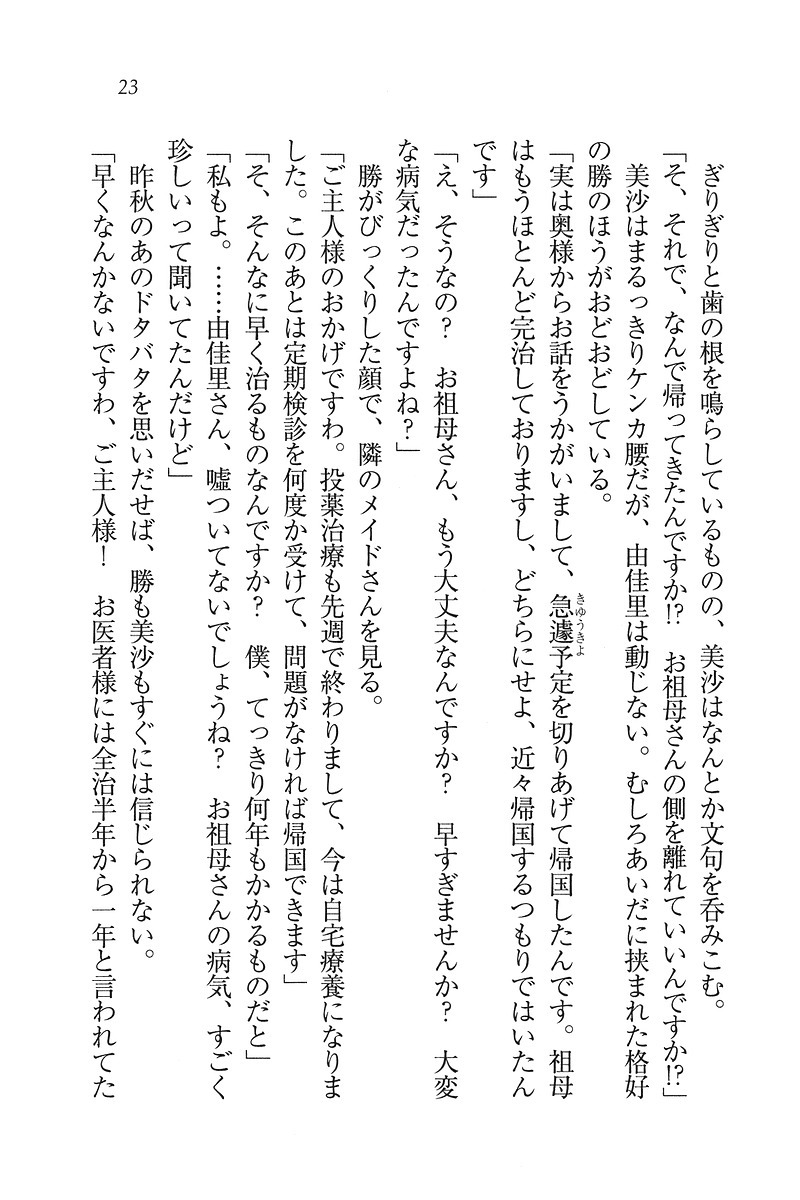 23
ぎりぎりと歯の根を鳴らしているものの、美沙はなんとか文句を呑みこむ。
「そ、それで、なんで帰ってきたんですか!?　お祖母さんの側を離れていいんですか!?」
美沙はまるっきりケンカ腰だが、由佳里は動じない。むしろあいだに挟まれた格好
の勝のほうがおどおどしている。
「実は奥様からお話をうかがいまして、急遽予定を切りあげて帰国したんです。祖母
きゆうきよ
はもうほとんど完治しておりますし、どちらにせよ、近々帰国するつもりではいたん
です」
「え、そうなの？　お祖母さん、もう大丈夫なんですか？　早すぎませんか？　大変
な病気だったんですよね？」
勝がびっくりした顔で、隣のメイドさんを見る。
「ご主人様のおかげですわ。投薬治療も先週で終わりまして、今は自宅療養になりま
した。このあとは定期検診を何度か受けて、問題がなければ帰国できます」
「そ、そんなに早く治るものなんですか？　僕、てっきり何年もかかるものだと」
「私もよ。……由佳里さん、嘘ついてないでしょうね？　お祖母さんの病気、すごく
珍しいって聞いてたんだけど」
昨秋のあのドタバタを思いだせば、勝も美沙もすぐには信じられない。
「早くなんかないですわ、ご主人様！　お医者様には全治半年から一年と言われてた